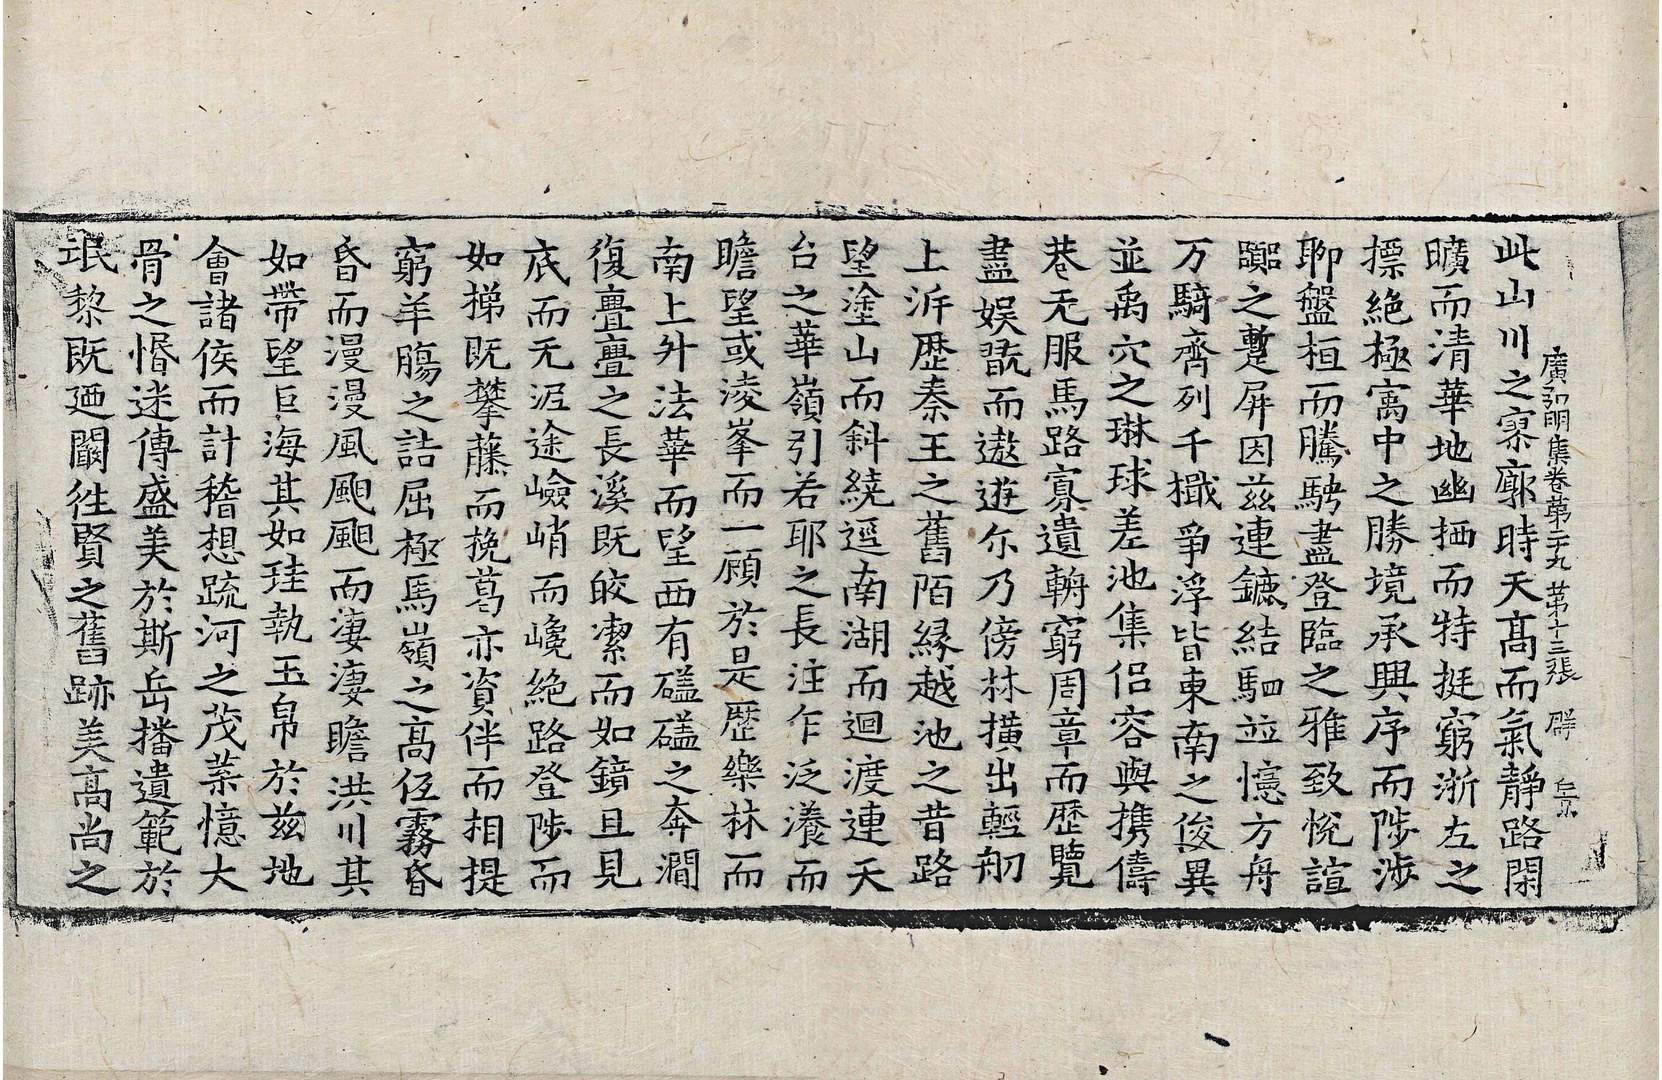 此山川之寥廓時天髙而氣静路閑
廣弘明集卷第二十九　第十三張　群
曠而清華地幽栖而特挺窮浙左之
摽絶極寓中之勝境承興序而陟渉
聊盤桓而騰騁盡登臨之雅致恱諠
之蹔屏因茲連鑣結駟並憶方舟
万騎齊列千檝爭浮皆東南之俊異
並禹穴之琳球差池集侣容與携儔
巷无服馬路寡遺輈窮周章而歷覽
盡娯翫而遨遊尒乃傍林撗出輕舠
上泝歷秦王之舊陌縁越池之昔路
望塗山而斜繞逕南湖而迴渡連天
台之華嶺引若耶之長注乍泛瀁而
瞻望或淩峯而一顧於是歷樂林而
南上外法華而望西有礚礚之奔澗
復亹亹之長溪既皎潔而如鏡且見
底而无泥途嶮峭而巉絶路登陟而
如梯既攀藤而挽葛亦資伴而相提
窮羊腸之詰屈極馬嶺之髙低霧昏
昏而漫漫風颸颸而淒淒瞻洪川其
如帶望巨海其如珪執玉帛於茲地
會諸侯而計稽想疏河之茂菜憶大
骨之惛迷傳盛美於斯岳播遺範於
氓黎既廼闞徃賢之舊跡美髙尚之